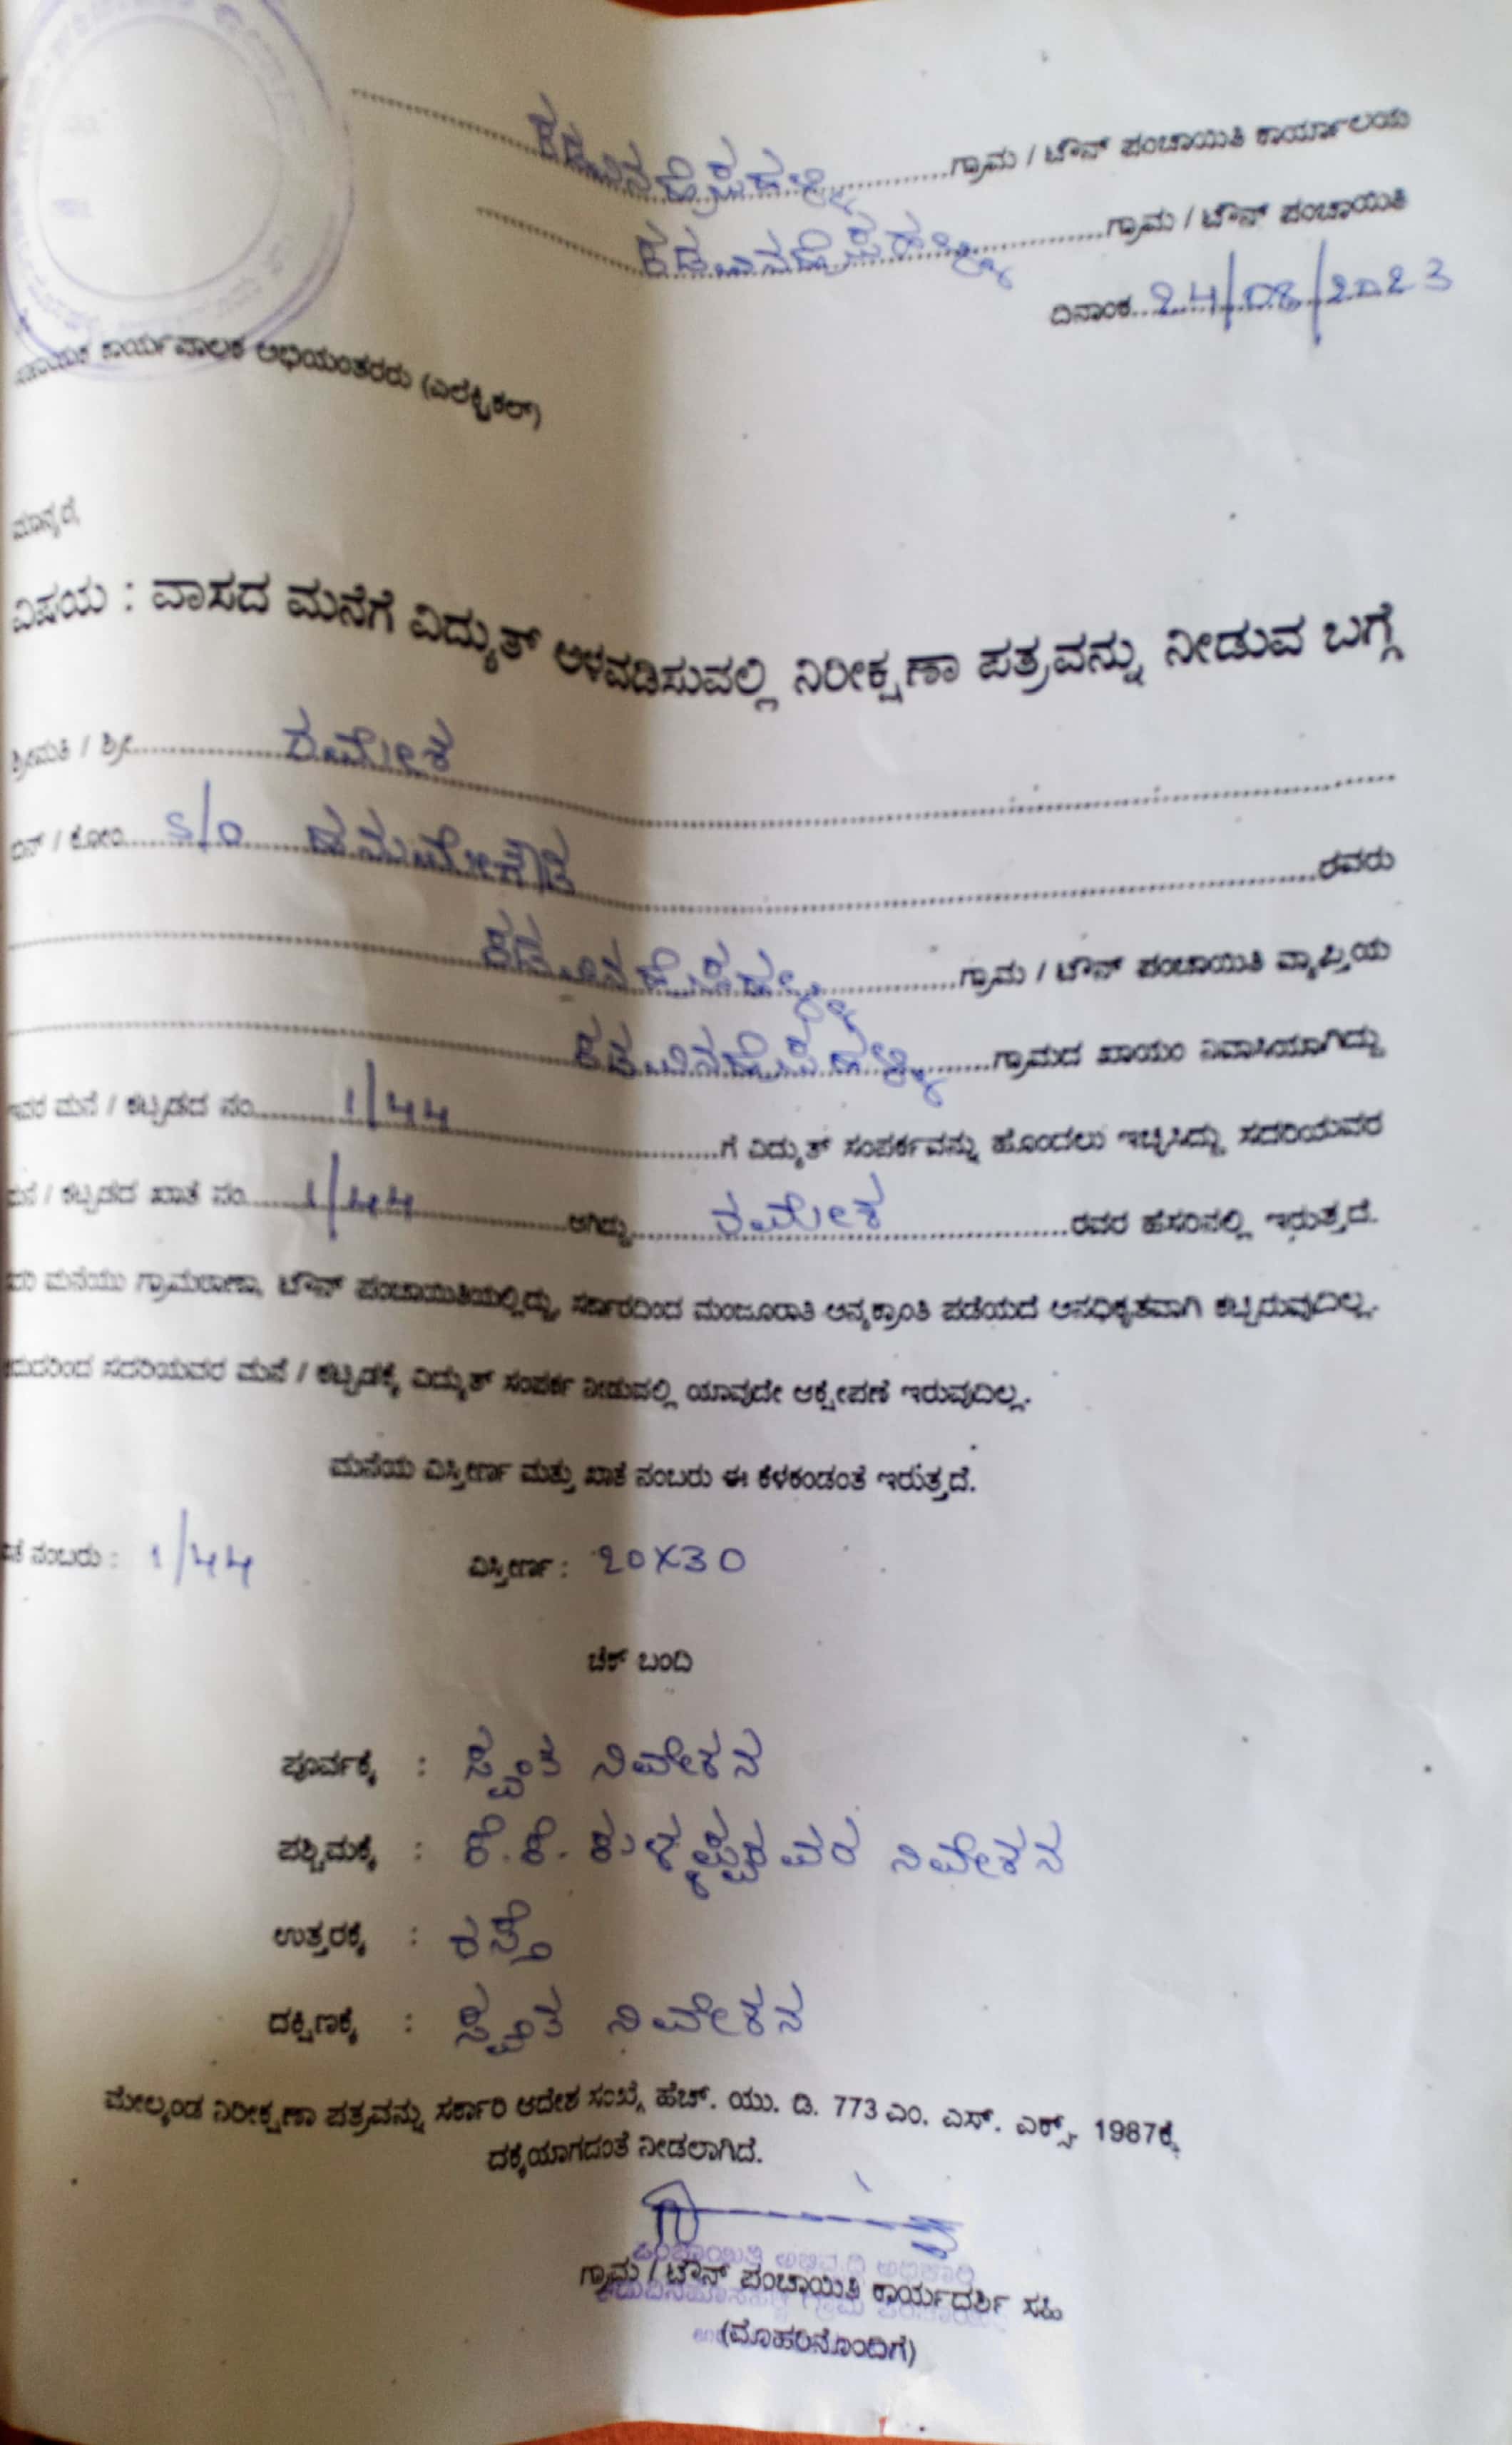 ಕಡುವಿನಹೊಸಹಳ್ಳಿ ಗ್ರಾಮ / ಟೌನ್ ಪಂಚಾಯಿತಿ ಕಾರ್ಯಾಲಯ
ಕಡುವಿನಹೊಸಹಳ್ಳಿ ಗ್ರಾಮ / ಟೌನ್ ಪಂಚಾಯಿತಿ
ದಿನಾಂಕ 24/08/2023
ಸಹಾಯಕ ಕಾರ್ಯಪಾಲಕ ಅಭಿಯಂತರರು (ಎಲೆಕ್ಟ್ರಿಕಲ್)
ಮಾನ್ಯರೆ,
ವಿಷಯ : ವಾಸದ ಮನೆಗೆ ವಿದ್ಯುತ್ ಅಳವಡಿಸುವಲ್ಲಿ ನಿರೀಕ್ಷಣಾ ಪತ್ರವನ್ನು ನೀಡುವ ಬಗ್ಗೆ
ಶ್ರೀಮತಿ / ಶ್ರೀ ರಮೇಶ
ಬಿನ್ / ಕೋಂ S/O ರವರು
ಕಡುವಿನಹೊಸಹಳ್ಳಿ ಗ್ರಾಮ / ಟೌನ್ ಪಂಚಾಯಿತಿ ವ್ಯಾಪ್ತಿಯ
ಕಡುವಿನಹೊಸಹಳ್ಳಿ ಗ್ರಾಮದ ಖಾಯಂ ನಿವಾಸಿಯಾಗಿದ್ದು
ಇವರ ಮನೆ / ಕಟ್ಟಡದ ನಂ 1/44 ಗೆ ವಿದ್ಯುತ್ ಸಂಪರ್ಕವನ್ನು ಹೊಂದಲು ಇಚ್ಛಿಸಿದ್ದು ಸದರಿಯವರ
ಮನೆ / ಕಟ್ಟಡದ ಖಾತೆ ನಂ 1/44 ಆಗಿದ್ದು ರಮೇಶ ರವರ ಹೆಸರಿನಲ್ಲಿ ಇರುತ್ತದೆ.
ಮನೆಯು ಗ್ರಾಮಠಾಣಾ, ಟೌನ್ ಪಂಚಾಯಿತಿಯಲ್ಲಿದ್ದು, ಸರ್ಕಾರದಿಂದ ಮಂಜೂರಾತಿ ಅನ್ಯಕ್ರಾಂತಿ ಪಡೆಯದೆ ಅನಧಿಕೃತವಾಗಿ ಕಟ್ಟಿರುವುದಿಲ್ಲ.
ಆದುದರಿಂದ ಸದರಿಯವರ ಮನೆ / ಕಟ್ಟಡಕ್ಕೆ ವಿದ್ಯುತ್ ಸಂಪರ್ಕ ನೀಡುವಲ್ಲಿ ಯಾವುದೇ ಆಕ್ಷೇಪಣೆ ಇರುವುದಿಲ್ಲ.
ಮನೆಯ ವಿಸ್ತೀರ್ಣ ಮತ್ತು ಖಾತೆ ನಂಬರು ಈ ಕೆಳಕಂಡಂತೆ ಇರುತ್ತದೆ.
ನಂಬರು : 1/44 ವಿಸ್ತೀರ್ಣ : 20X30
ಚೆಕ್ ಬಂದಿ
ಪೂರ್ವಕ್ಕೆ : ಸ್ವಂತ ನಿವೇಶನ
ಪಶ್ಚಿಮಕ್ಕೆ : ಕೆ.ಕೆ. ನಿವೇಶನ
ಉತ್ತರಕ್ಕೆ : ರಸ್ತೆ
ದಕ್ಷಿಣಕ್ಕೆ : ಸ್ವಂತ ನಿವೇಶನ
ಮೇಲ್ಕಂಡ ನಿರೀಕ್ಷಣಾ ಪತ್ರವನ್ನು ಸರ್ಕಾರಿ ಆದೇಶ ಸಂಖ್ಯೆ ಹೆಚ್. ಯು. ಡಿ. 773 ಎಂ. ಎಸ್. ಎಕ್ಸ್. 1987ಕ್ಕೆ
ದಕ್ಕೆಯಾಗದಂತೆ ನೀಡಲಾಗಿದೆ.
ಪಂಚಾಯಿತಿ ಅಭಿವೃದ್ಧಿ ಅಧಿಕಾರಿ
ಗ್ರಾಮ / ಟೌನ್ ಪಂಚಾಯಿತಿ ಕಾರ್ಯದರ್ಶಿ ಸಹಿ
(ಮೊಹರಿನೊಂದಿಗೆ)